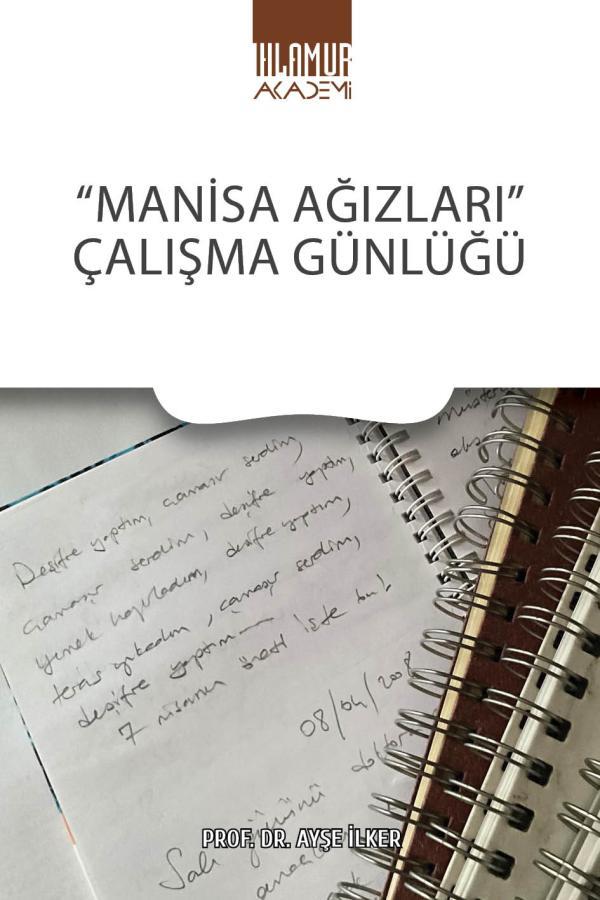 IHLAMUR
AKADEMİ
“MANİSA AĞIZLARI”
ÇALIŞMA GÜNLÜĞÜ
Deşifre yaptım, çamaşır serdim,
çamaşır serdim, deşifre yaptım,
yemek hazırladım, deşifre yaptım,
teras yıkadım, çamaşır serdim,
deşifre yaptım
7 nisanın özeti işte bu!
08/04/2008
Salı gününü doktor
PROF. DR. AYŞE İLKER